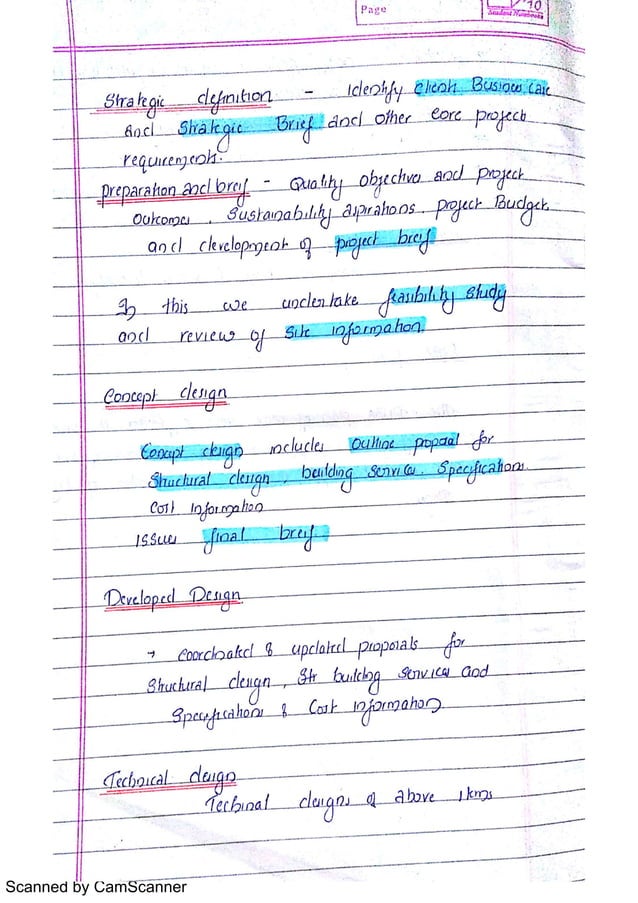 Page
10
Student Notebooks
Strategic definition - Identify Client Business Case
and Strategic Brief and other core project
requirements.
Preparation and brief - Quality objectives and project
outcomes, Sustainability aspirations, project Budget
and development of project brief
In this we undertake feasibility study
and review of site information.
Concept design
Concept design includes outline proposal for
Structural design, building service, Specifications
Cost Information
Issue final brief
Developed Design
→ coordinated & updated proposals for
Structural design, Str building service and
Specifications & Cost information
Technical design
Techinal designs of above items
Scanned by CamScanner